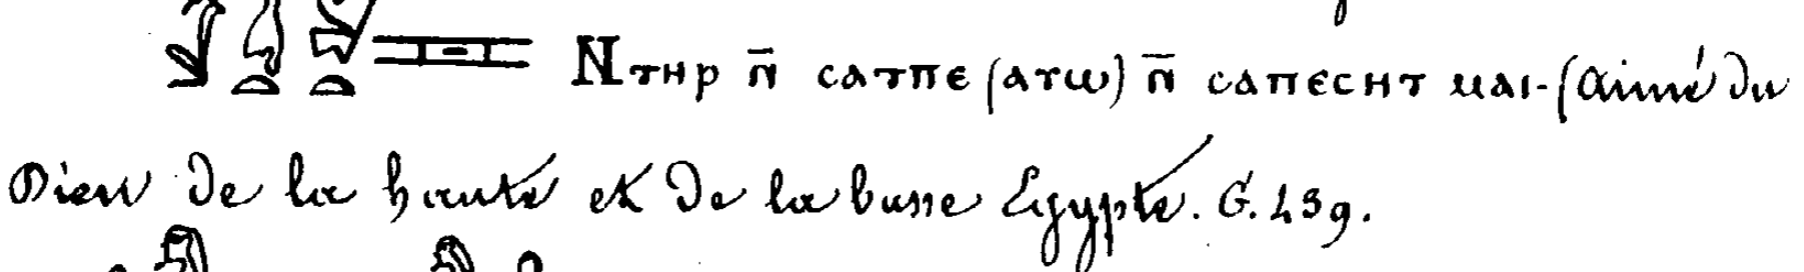 Ⲛⲧⲏⲣ ⲛ̄ ⲥⲁⲧⲡⲉ (ⲁⲩⲱ) ⲛ̄ ⲥⲁⲡⲉⲥⲏⲧ ⲙⲁⲓ-(aimé du
Dieu de la haute et de la basse Egypte. G. 459.